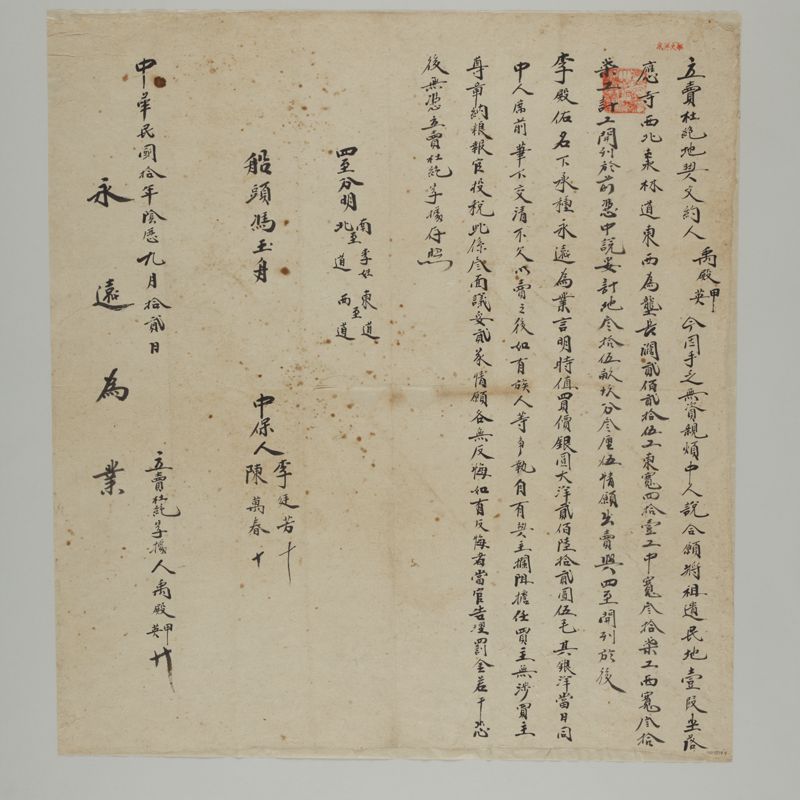 立賣杜絕地契文約人禹殿甲英今因手乏無資親煩中人說合願將祖遺民地壹段坐落
應寺西北東林道東西為壟長濶貳佰貳拾伍工東寬四拾壹工中寬叁拾柒工西寬叁拾
柒工計工開列於前憑中說妥計地叁拾伍畝玖分叁厘伍情願出賣與四至開列於後
李殿佑名下承種永遠為業言明時值買價銀圓大洋貳佰陸拾貳圓伍毛其銀洋當日同
中人席前筆下交清不欠以賣之後如有族人等爭執自有契主攔阻擔任買主無涉買主
尊章納粮報官投税此係叁面議妥貳家情願各無反悔如有反悔者當官告理罰金若干恐
後無憑立賣杜絕字據存照
四至分明
南至李姓 東至道
北至道 西至道
船頭馮玉舟
中保人
李廷芳十
陳萬春十
中華民國拾年陰歷九月拾貳日
立賣杜絕字據人禹殿甲英
永遠為業